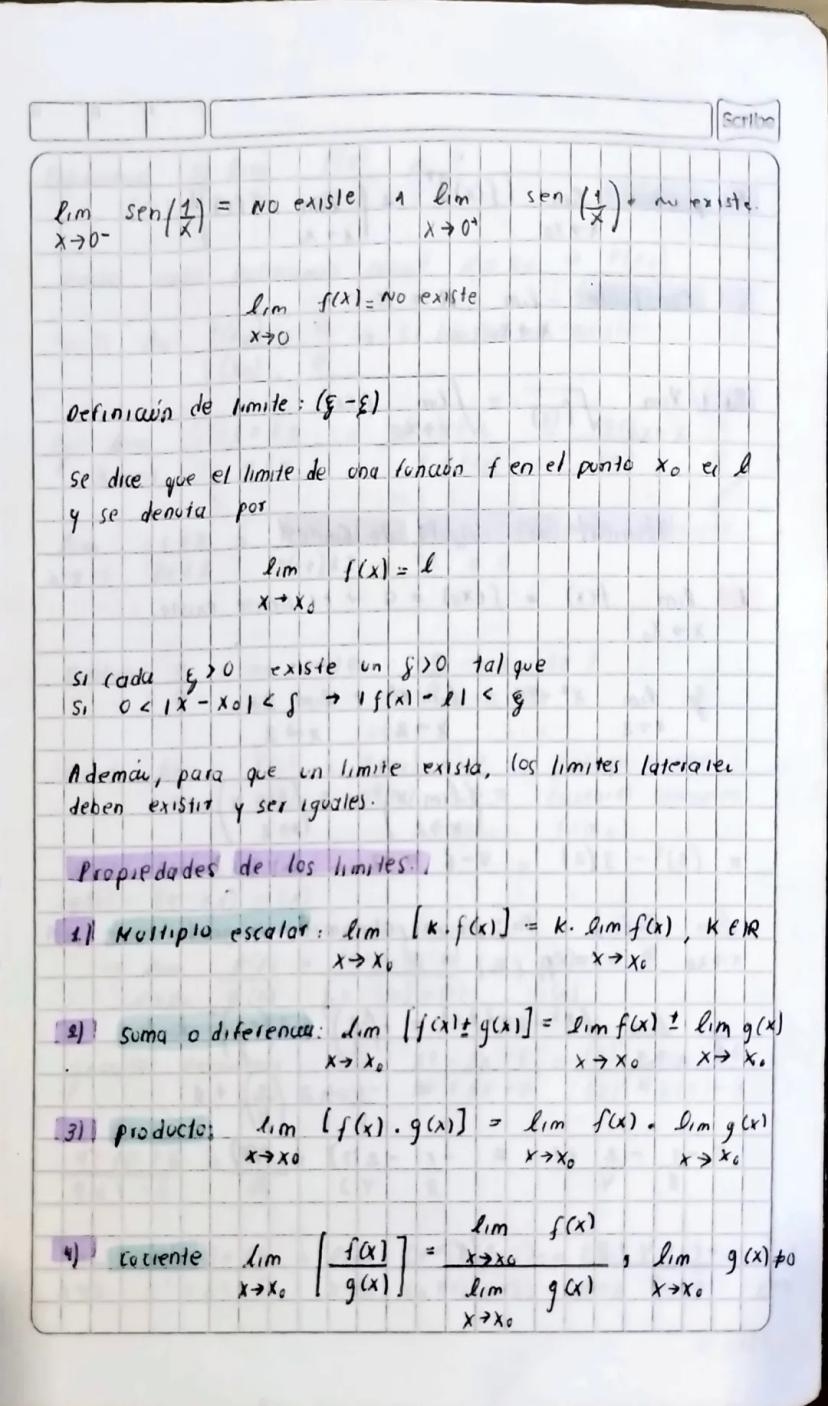 Scribe
lim sen(1/x) = No existe ∧ lim sen (1/x) = no existe.
x→0⁻ x→0⁺
lim f(x) = No existe
x→0
Definición de limite: (ξ-ξ)
se dice que el limite de una función f en el punto x₀ es l
y se denota por
lim f(x) = l
x→x₀
si cada ξ>0 existe un δ>0 tal que
Si 0<|x-x₀|<δ → |f(x)-l|<ξ
Además, para que un limite exista, los limites laterales
deben existir y ser iguales.
Propiedades de los limites.
1) Multiplo escalar: lim [k.f(x)] = k. lim f(x), K ∈ IR
x→x₀ x→x₀
2) Suma o diferencia: lim [f(x)±g(x)] = lim f(x) ± lim g(x)
x→x₀ x→x₀ x→x₀
3) producto: lim [f(x).g(x)] = lim f(x). lim g(x)
x→x0 x→x₀ x→x₀
lim f(x)
4) cociente lim [f(x)/g(x)] = x→x₀ , lim g(x)≠0
x→x₀ lim g(x) x→x₀
x→x₀